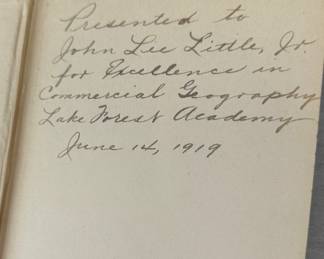 Presented to
John Lee Little, Jr.
for Excellence in
Commercial Geography
Lake Forest Academy
June 14, 1919